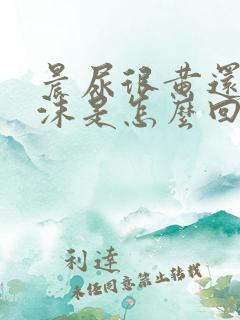 晨尿很黄還
沫是怎麼回
利達
未经同意禁止转载